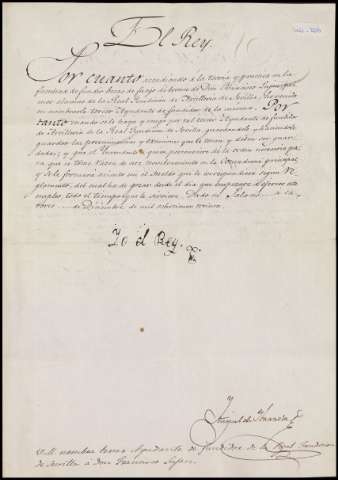 El Rey.
Por cuanto atendiendo a la teoria y practica en la
fundicion de bocas de fuego de bronce de Don Francisco
alumno de la Real Fundicion de Artilleria de Sevilla he venido
en nombrarle tercer Ayudante de fundidor de la misma. Por
tanto mando se le haya y tenga por tal tercer Ayudante de fundidor
de Artilleria de la Real Fundicion de Sevilla, guardandole y haciendole
guardar las preeminencias y exenciones que le tocan y deben ser guar-
dadas; y que el Intendente a quien perteneciere dé la orden necesaria pa-
ra que se tome razon de este nombramiento en la Contaduria principal,
y se le formará asiento con el sueldo que le corresponda segun Re-
glamento, del cual ha de gozar desde el dia que empezare á ejercer este
empleo, todo el tiempo que le sirviere. Dado en Palacio á ca-
torce de Diciembre de mil ochocientos
Yo el Rey
V.M. nombra tercer Ayudante de fundidor de la Real Fundicion
de Sevilla a don Francisco